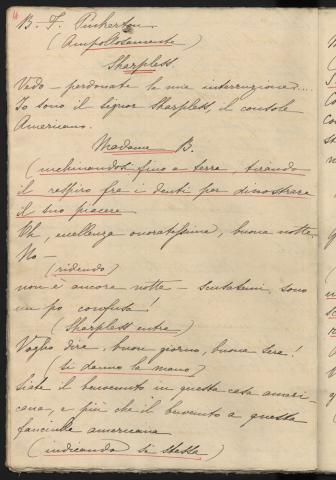 B. F. Pinkerton
(Ampollosamente)
Sharpless.
Vedo – perdonate la mia interruzione....
Io sono il signor Sharpless, il console
Americano.
Madame B.
(inchinandosi fino a terra, tirando
il respiro fra i denti per dimostrare
il suo piacere
Oh, eccellenza onoratissima, buona notte,
No –
(ridendo)
non è ancora notte – scusatemi, sono
un po' confusa!
(Sharpless entra)
Voglio dire, buon giorno, buona sera!
(si danno la mano)
Siate il benvenuto in questa casa ameri-
cana, e più che il benvenuto a questa
fanciulla americana
(indicando se stessa)